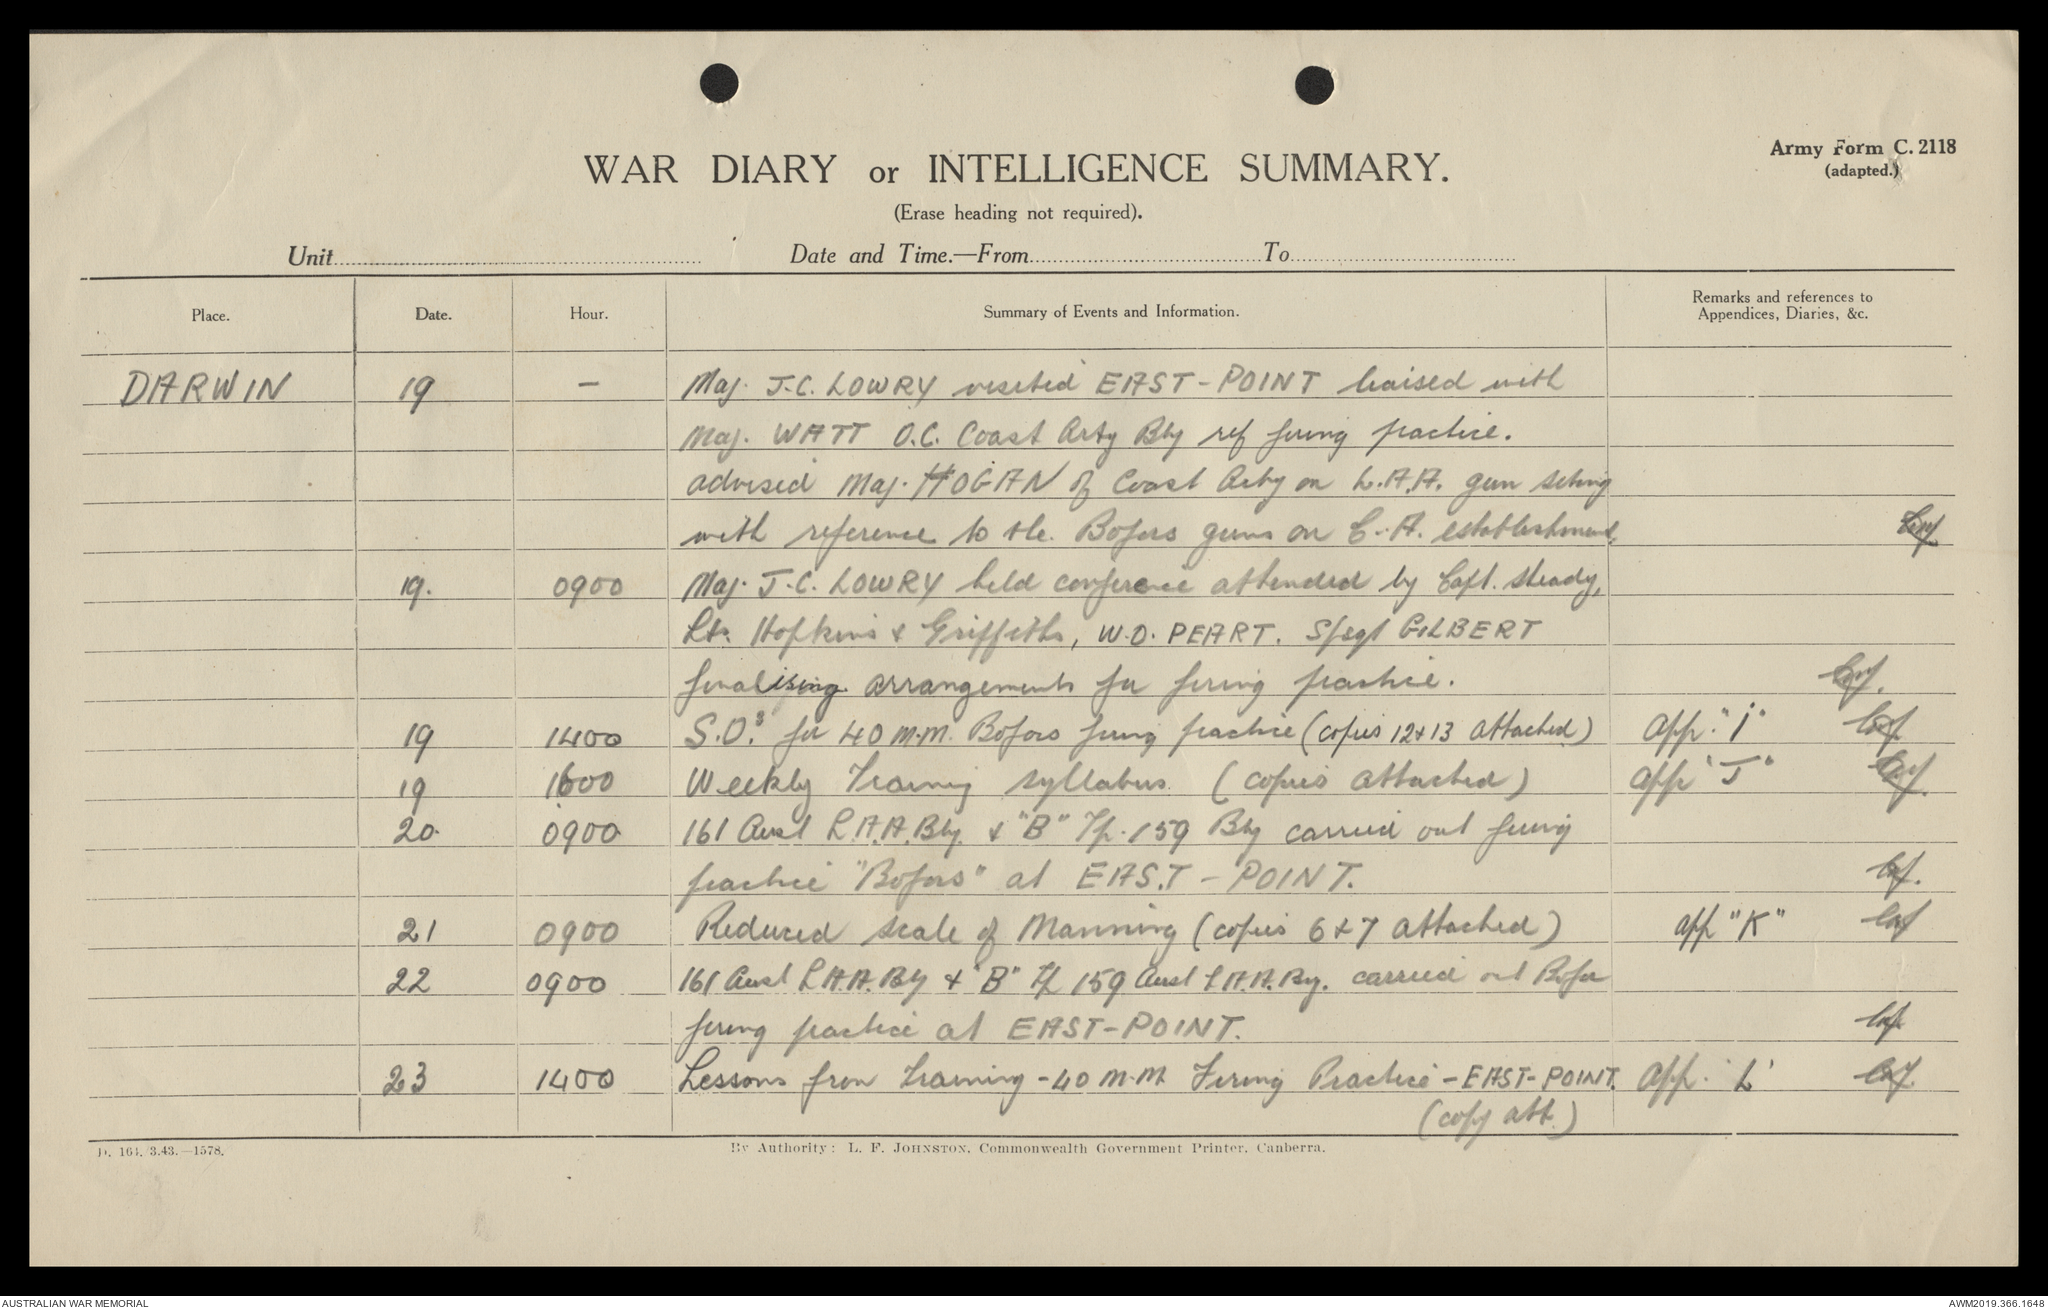 Army Form C. 2118
(adapted.)
WAR DIARY or INTELLIGENCE SUMMARY.
(Erase heading not required).
Unit Date and Time.—From To
Place. Date. Hour. Summary of Events and Information. Remarks and references to Appendices, Diaries, &c.
DARWIN 19 – Maj. J.C. LOWRY visited EAST-POINT liaised with
Maj. WATT O.C. Coast Arty Bty ref firing practice.
advised Maj. HOGAN of Coast Arty on L.A.A. gun siting
with reference to the Bofors guns on C.A. establishment.
19. 0900 Maj. J.C. LOWRY held conference attended by Capt. Steady,
Lts. Hopkins & Griffiths, W.O. PEART. S/Sgt GILBERT
finalising arrangements for firing practice.
19 1400 S.O.s for 40 M.M. Bofors firing practice (copies 12 & 13 attached) app. "I"
19 1600 Weekly Training syllabus (copies attached) app "J"
20. 0900 161 Aust L.A.A. Bty. & "B" Tp. 159 Bty carried out firing
practice "Bofors" at EAST-POINT.
21 0900 Reduced scale of Manning (copies 6 & 7 attached) app "K"
22 0900 161 Aust L.A.A. Bty & "B" Tp 159 Aust L.A.A. By. carried out Bofor
firing practice at EAST-POINT.
23 1400 Lessons from Training - 40 M.M. Firing Practice - EAST-POINT. app. 'L'
(copy att.)
D. 164. 3.43.—1578. By Authority: L. F. JOHNSTON, Commonwealth Government Printer, Canberra.
AUSTRALIAN WAR MEMORIAL AWM2019.366.1648